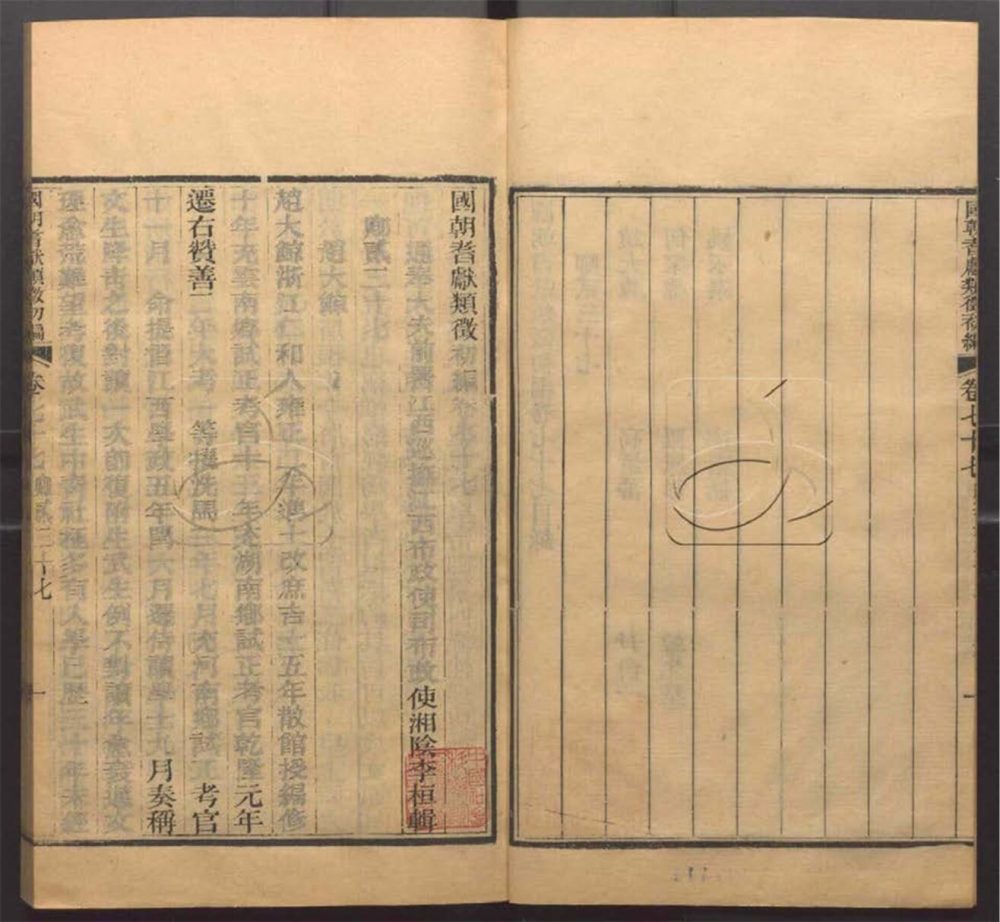 國朝耆獻類徵初編
卷七十七
國朝耆獻類徵初編卷七十七
通奉大夫前署江西巡撫江西布政使司布政使湘陰李桓輯
卿貳三十七
趙大鯨
趙大鯨浙江仁和人雍正二年進士改庶吉士五年散館授編修
十年充雲南鄉試正考官十三年充湖南鄉試正考官乾隆元年
遷右贊善二年大考一等擢洗馬三年七月充河南鄉試正考官
十一月命提督江西學政五年閏六月遷侍讀學士九月奏稱
文生降青之後對讀一次即復附生武生例不對讀年愈衰邁文
理愈荒難望考復故武生中青社極多有入學已歷三十年未經
國朝耆獻類徵初編
卷七十七 卿貳三十七
一